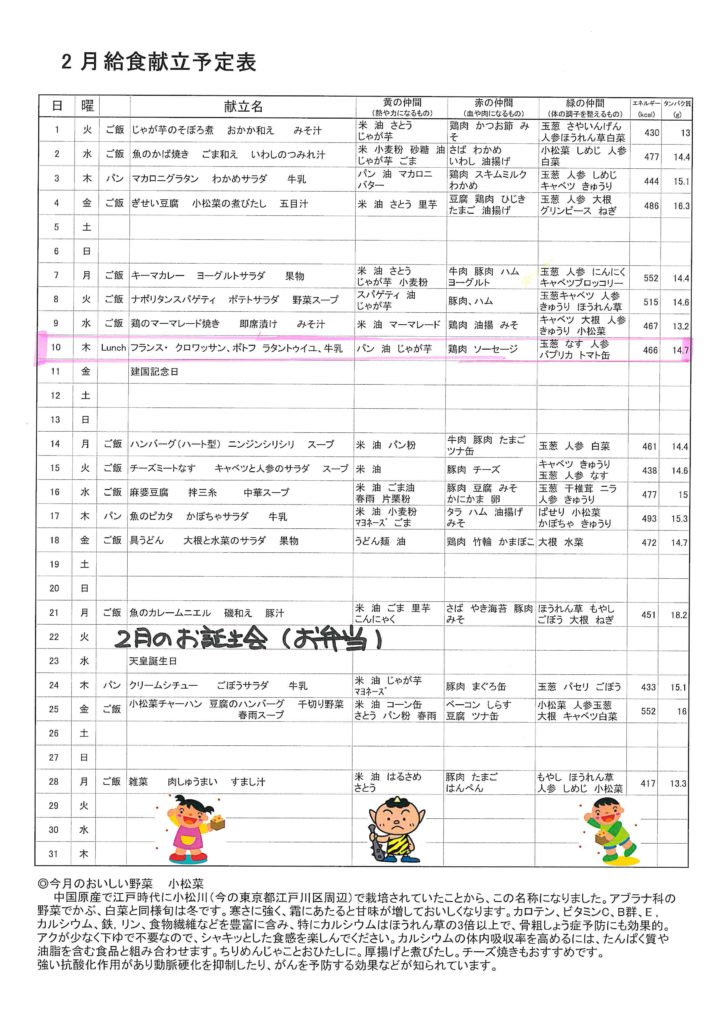 2月給食献立予定表
日 曜 献立名 黄の仲間 (熱や力になるもの) 赤の仲間 (血や肉になるもの) 緑の仲間 (体の調子を整えるもの) エネルギー (kcal) タンパク質 (g)
1 火 ご飯 じゃが芋のそぼろ煮 おかか和え みそ汁 米 油 さとう じゃが芋 鶏肉 かつお節 みそ 玉葱 さやいんげん 人参ほうれん草白菜 430 13
2 水 ご飯 魚のかば焼き ごま和え いわしのつみれ汁 米 小麦粉 砂糖 油 じゃが芋 ごま さば わかめ いわし 油揚げ 小松菜 しめじ 人参 白菜 477 14.4
3 木 パン マカロニグラタン わかめサラダ 牛乳 パン 油 マカロニ バター 鶏肉 スキムミルク わかめ 玉葱 人参 しめじ キャベツ きゅうり 444 15.1
4 金 ご飯 ぎせい豆腐 小松菜の煮びたし 五目汁 米 油 さとう 里芋 豆腐 鶏肉 ひじき たまご 油揚げ 玉葱 人参 大根 グリンピース ねぎ 486 16.3
5 土
6 日
7 月 ご飯 キーマカレー ヨーグルトサラダ 果物 米 油 さとう じゃが芋 小麦粉 牛肉 豚肉 ハム ヨーグルト 玉葱 人参 にんにく キャベツブロッコリー 552 14.4
8 火 ご飯 ナポリタンスパゲティ ポテトサラダ 野菜スープ スパゲティ 油 じゃが芋 豚肉、ハム 玉葱キャベツ 人参 きゅうり ほうれん草 515 14.6
9 水 ご飯 鶏のマーマレード焼き 即席漬け みそ汁 米 油 マーマレード 鶏肉 油揚 みそ キャベツ 大根 人参 きゅうり 小松菜 467 13.2
10 木 Lunch フランス・ クロワッサン、ポトフ ラタントゥイユ、牛乳 パン 油 じゃが芋 鶏肉 ソーセージ 玉葱 なす 人参 パプリカ トマト缶 466 14.7
11 金 建国記念日
12 土
13 日
14 月 ご飯 ハンバーグ(ハート型) ニンジンシリシリ スープ 米 油 パン粉 牛肉 豚肉 たまご ツナ缶 玉葱 人参 白菜 461 14.4
15 火 ご飯 チーズミートなす キャベツと人参のサラダ スープ 米 油 豚肉 チーズ キャベツ きゅうり 玉葱 人参 なす 438 14.6
16 水 ご飯 麻婆豆腐 拌三糸 中華スープ 米 油 ごま油 春雨 片栗粉 豚肉 豆腐 みそ かにかま 卵 玉葱 干椎茸 ニラ 人参 きゅうり 477 15
17 木 パン 魚のピカタ かぼちゃサラダ 牛乳 米 油 小麦粉 マヨネーズ ごま タラ ハム 油揚げ みそ ぱせり 小松菜 かぼちゃ きゅうり 493 15.3
18 金 ご飯 具うどん 大根と水菜のサラダ 果物 うどん麺 油 鶏肉 竹輪 かまぼこ 大根 水菜 472 14.7
19 土
20 日
21 月 ご飯 魚のカレームニエル 磯和え 豚汁 米 油 ごま 里芋 こんにゃく さば やき海苔 豚肉 みそ ほうれん草 もやし ごぼう 大根 ねぎ 451 18.2
22 火 2月のお誕生会(お弁当)
23 水 天皇誕生日
24 木 パン クリームシチュー ごぼうサラダ 牛乳 米 油 じゃが芋 マヨネーズ 豚肉 まぐろ缶 玉葱 パセリ ごぼう 433 15.1
25 金 ご飯 小松菜チャーハン 豆腐のハンバーグ 千切り野菜 春雨スープ 米 油 コーン缶 さとう パン粉 春雨 ベーコン しらす 豆腐 ツナ缶 小松菜 人参玉葱 大根 キャベツ白菜 552 16
26 土
27 日
28 月 ご飯 雑菜 肉しゅうまい すまし汁 米 油 はるさめ さとう 豚肉 たまご はんぺん もやし ほうれん草 人参 しめじ 小松菜 417 13.3
29 火
30 水
31 木
◎今月のおいしい野菜 小松菜
中国原産で江戸時代に小松川(今の東京都江戸川区周辺)で栽培されていたことから、この名称になりました。アブラナ科の
野菜でかぶ、白菜と同様旬は冬です。寒さに強く、霜にあたると甘味が増しておいしくなります。カロテン、ビタミンC、B群、E,
カルシウム、鉄,リン、食物繊維などを豊富に含み、特にカルシウムはほうれん草の3倍以上で、骨粗しょう症予防にも効果的。
アクが少なく下ゆで不要なので、シャキッとした食感を楽しんでください。カルシウムの体内吸収率を高めるには、たんぱく質や
油脂を含む食品と組み合わせます。ちりめんじゃことおひたしに。厚揚げと煮びたし。チーズ焼きもおすすめです。
強い抗酸化作用があり動脈硬化を抑制したり、がんを予防する効果などが知られています。